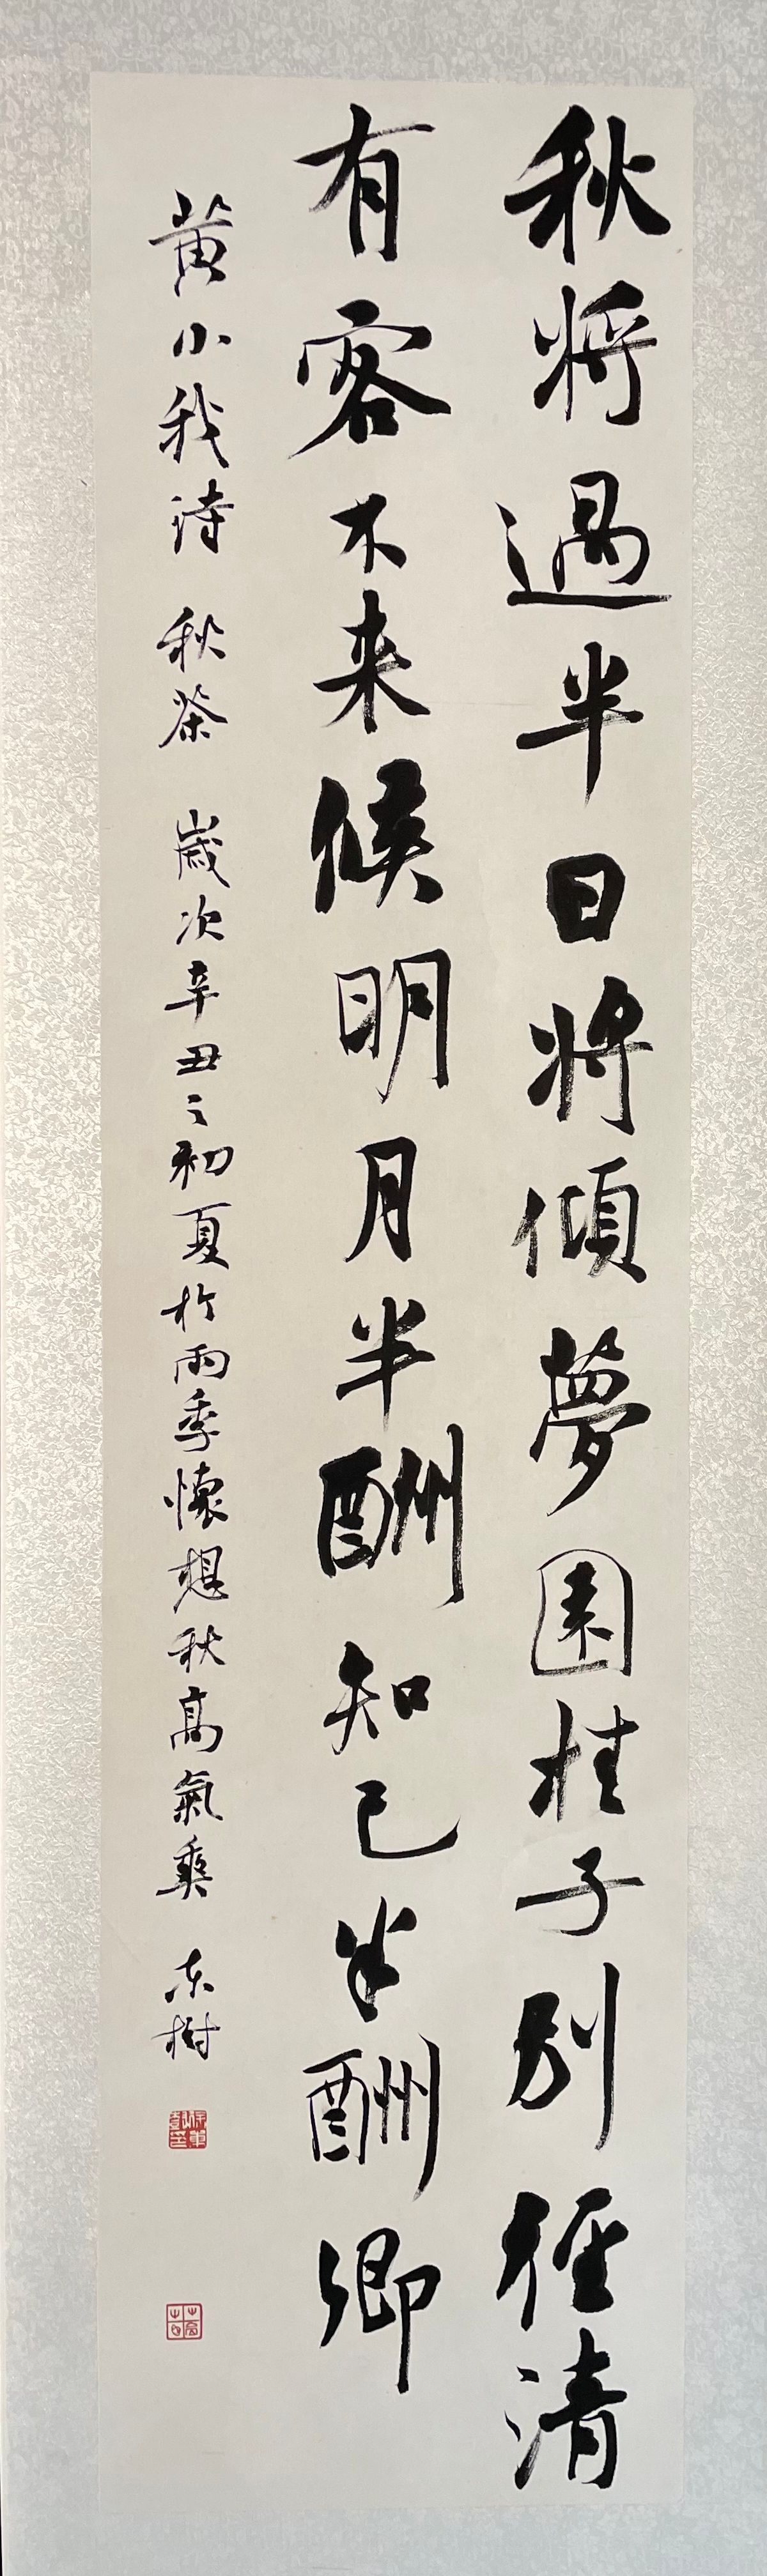 秋將過半日將傾夢園桂子別徑清
有客不来候明月半酬知己半酬卿
黄小我诗 秋茶 歲次辛丑之初夏於雨季懷想秋高氣爽 东樹